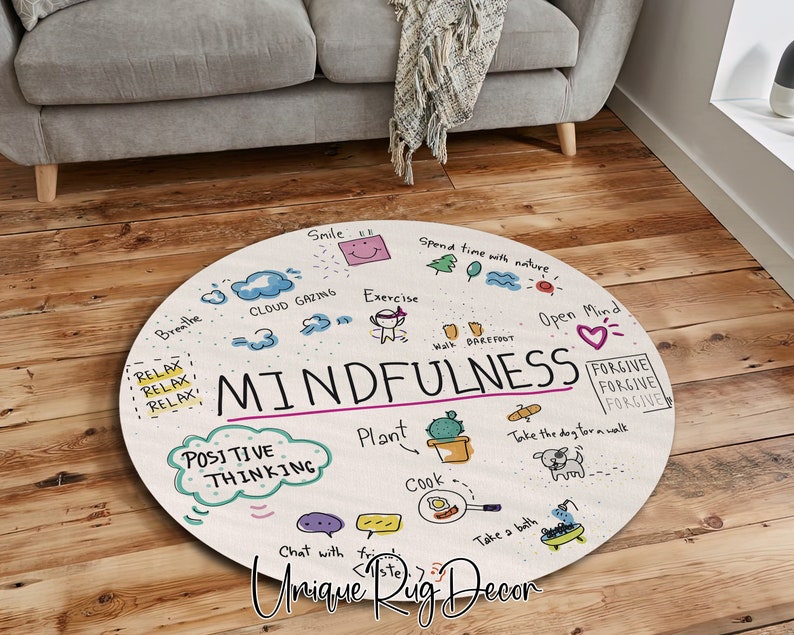 Smile
Spend time with nature
CLOUD GAZING
Exercise
Breathe
Walk BAREFOOT
Open Mind
RELAX
RELAX
RELAX
MINDFULNESS
FORGIVE
FORGIVE
FORGIVE
POSITIVE
THINKING
Plant
Take the dog for a walk
Cook
Take a bath
Chat with
Unique Rug Decor